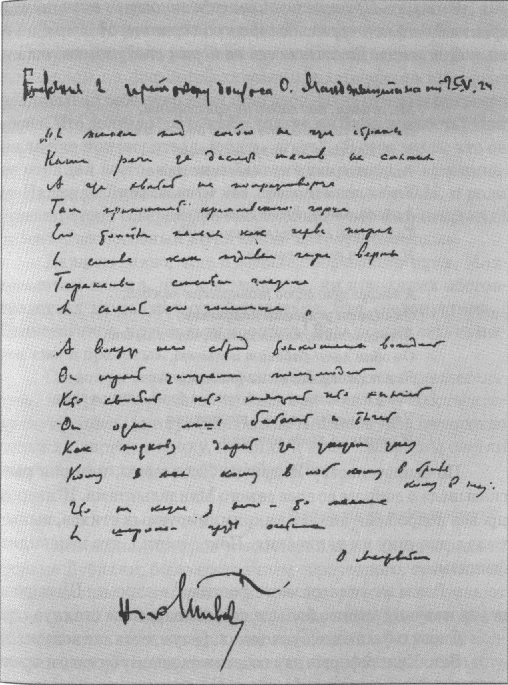 Приложение к протоколу допроса О. Мандельштама от 25.V.34
Мы живем под собою не чуя страны
Наши речи за десять шагов не слышны
А где хватит на полразговорца
Там припомнят кремлевского горца
Его толстые пальцы как черви жирны
И слова как пудовые гири верны
Тараканьи смеются глазища
И сияют его голенища
А вокруг него сброд тонкошеих вождей
Он играет услугами полулюдей
Кто свистит кто мяучит кто хнычет
Он один лишь бабачит и тычет
Как подкову дарит за указом указ
Кому в пах кому в лоб кому в бровь
кому в глаз.
Что ни казнь у него – то малина
И широкая грудь осетина
О. Мандельштам